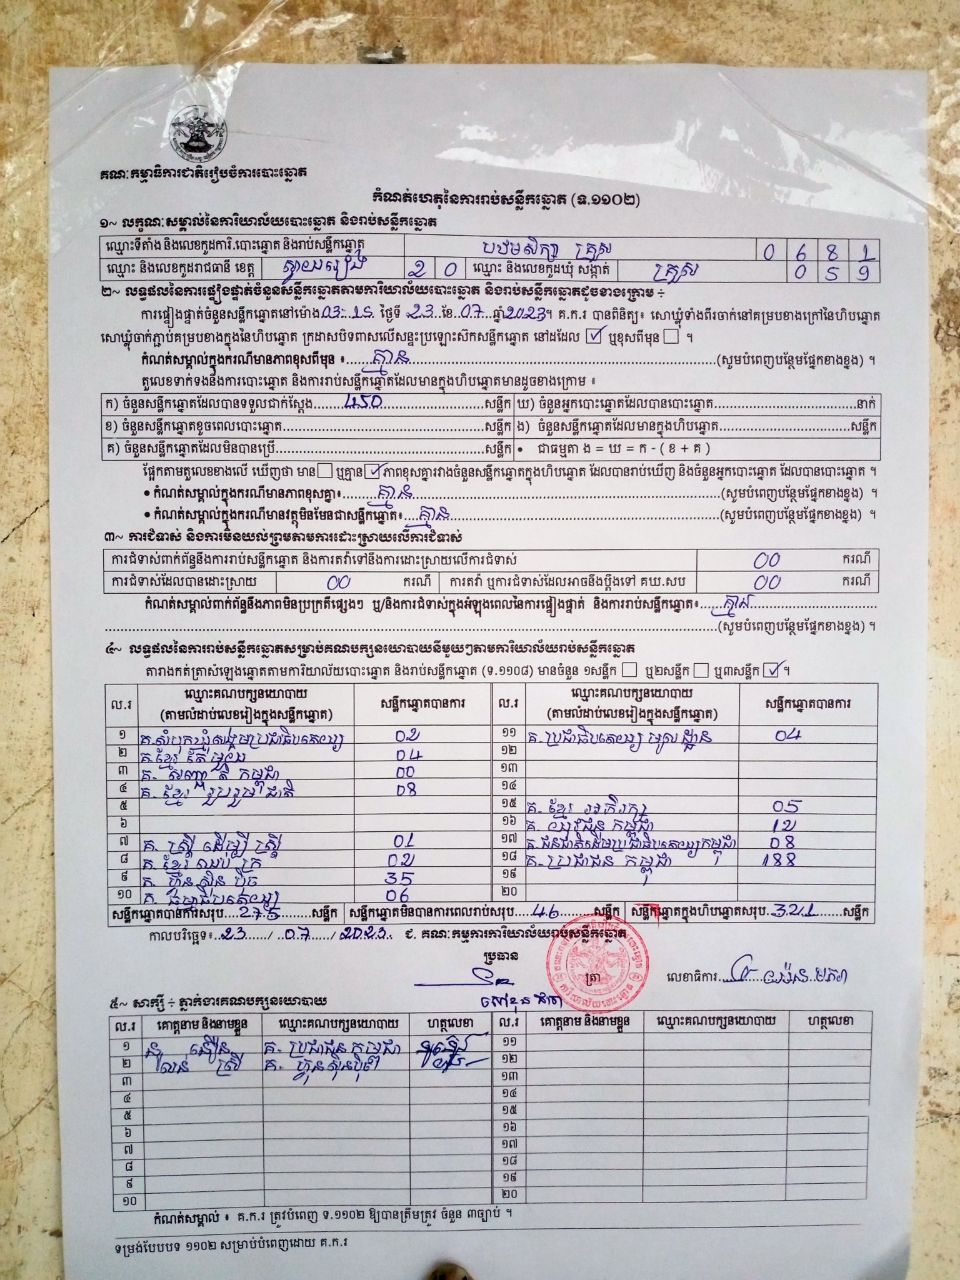 គណៈកម្មាធិការជាតិរៀបចំការបោះឆ្នោត
កំណត់ហេតុនៃការរាប់សន្លឹកឆ្នោត (ទ.១១០២)
១~ លក្ខណៈសម្គាល់នៃការិយាល័យបោះឆ្នោត និងរាប់សន្លឹកឆ្នោត
ឈ្មោះទីតាំង និងលេខកូដការិ.បោះឆ្នោត និងរាប់សន្លឹកឆ្នោត បឋមសិក្សា គ្រួស 0 6 8 1
ឈ្មោះ និងលេខកូដរាជធានី ខេត្ត ស្វាយរៀង 2 0 ឈ្មោះ និងលេខកូដឃុំ សង្កាត់ គ្រួស 0 5 9
២~ លទ្ធផលនៃការផ្ទៀងផ្ទាត់ចំនួនសន្លឹកឆ្នោតតាមការិយាល័យបោះឆ្នោត និងរាប់សន្លឹកឆ្នោតដូចខាងក្រោម ÷
ការផ្ទៀងផ្ទាត់ចំនួនសន្លឹកឆ្នោតនៅម៉ោង 03:15 ថ្ងៃទី 23 ខែ 07 ឆ្នាំ 2023 ។ គ.ក.រ បានពិនិត្យ៖ សោឃ្មុំទាំងពីរចាក់នៅគម្របខាងក្រៅនៃហិបឆ្នោត
សោឃ្មុំចាក់ភ្ជាប់គម្របខាងក្នុងនៃហិបឆ្នោត ក្រដាសបិទពាសលើសន្ទះប្រឡោះស៊កសន្លឹកឆ្នោត នៅដដែល ☑ ឬខុសពីមុន ☐ ។
កំណត់សម្គាល់ក្នុងករណីមានភាពខុសពីមុន ៖ គ្មាន (សូមបំពេញបន្ថែមផ្នែកខាងខ្នង) ។
តួលេខទាក់ទងនឹងការបោះឆ្នោត និងការរាប់សន្លឹកឆ្នោតដែលមានក្នុងហិបឆ្នោតមានដូចខាងក្រោម ៖
ក) ចំនួនសន្លឹកឆ្នោតដែលបានទទួលជាក់ស្តែង 450 សន្លឹក ឃ) ចំនួនអ្នកបោះឆ្នោតដែលបានបោះឆ្នោត នាក់
ខ) ចំនួនសន្លឹកឆ្នោតខូចពេលបោះឆ្នោត សន្លឹក ង) ចំនួនសន្លឹកឆ្នោតដែលមានក្នុងហិបឆ្នោត សន្លឹក
គ) ចំនួនសន្លឹកឆ្នោតដែលមិនបានប្រើ សន្លឹក • ជាធម្មតា ង = ឃ = ក - ( ខ + គ )
ផ្អែកតាមតួលេខខាងលើ ឃើញថា មាន ☐ ឬគ្មាន ☑ ភាពខុសគ្នារវាងចំនួនសន្លឹកឆ្នោតក្នុងហិបឆ្នោត ដែលបានរាប់ឃើញ និងចំនួនអ្នកបោះឆ្នោត ដែលបានបោះឆ្នោត ។
• កំណត់សម្គាល់ក្នុងករណីមានភាពខុសគ្នា៖ គ្មាន (សូមបំពេញបន្ថែមផ្នែកខាងខ្នង) ។
• កំណត់សម្គាល់ក្នុងករណីមានវត្ថុមិនមែនជាសន្លឹកឆ្នោត៖ គ្មាន (សូមបំពេញបន្ថែមផ្នែកខាងខ្នង) ។
៣~ ការជំទាស់ និងការមិនយល់ព្រមតាមការដោះស្រាយលើការជំទាស់
ការជំទាស់ពាក់ព័ន្ធនឹងការរាប់សន្លឹកឆ្នោត និងការតវ៉ាទៅនឹងការដោះស្រាយលើការជំទាស់ 00 ករណី
ការជំទាស់ដែលបានដោះស្រាយ 00 ករណី ការតវ៉ា ឬការជំទាស់ដែលអាចនឹងប្តឹងទៅ គឃ.សប 00 ករណី
កំណត់សម្គាល់ពាក់ព័ន្ធនឹងភាពមិនប្រក្រតីផ្សេងៗ ឬ/និងការជំទាស់ក្នុងអំឡុងពេលនៃការផ្ទៀងផ្ទាត់ និងការរាប់សន្លឹកឆ្នោត៖ គ្មាន
(សូមបំពេញបន្ថែមផ្នែកខាងខ្នង) ។
៤~ លទ្ធផលនៃការរាប់សន្លឹកឆ្នោតសម្រាប់គណបក្សនយោបាយនីមួយៗតាមការិយាល័យរាប់សន្លឹកឆ្នោត
តារាងកត់ត្រាសំឡេងឆ្នោតតាមការិយាល័យបោះឆ្នោត និងរាប់សន្លឹកឆ្នោត (ទ.១១០៨) មានចំនួន ១សន្លឹក ☐ ឬ២សន្លឹក ☐ ឬ៣សន្លឹក ☑ ។
ល.រ ឈ្មោះគណបក្សនយោបាយ (តាមលំដាប់លេខរៀងក្នុងសន្លឹកឆ្នោត) សន្លឹកឆ្នោតបានការ ល.រ ឈ្មោះគណបក្សនយោបាយ (តាមលំដាប់លេខរៀងក្នុងសន្លឹកឆ្នោត) សន្លឹកឆ្នោតបានការ
១ គ.សំបុកឃ្មុំសង្គមប្រជាធិបតេយ្យ 02 ១១ គ.ប្រជាធិបតេយ្យ មូលដ្ឋាន 04
២ គ.ខ្មែរ តែមួយ 04 ១២
៣ គ. សញ្ជាតិ កម្ពុជា 00 ១៣
៤ គ. ខ្មែរ រួបរួម ជាតិ 08 ១៤
៥ ១៥ គ. ខ្មែរ អភិរក្ស 05
៦ ១៦ គ. យុវជន កម្ពុជា 12
៧ គ. ស្ត្រី ដើម្បី ស្ត្រី 01 ១៧ គ.ជនជាតិដើមប្រជាធិបតេយ្យកម្ពុជា 08
៨ គ. ខ្មែរ ឈប់ ក្រ 02 ១៨ គ. ប្រជាជន កម្ពុជា 188
៩ គ. ហ៊្វុនស៊ិនប៉ិច 35 ១៩
១០ គ. ធម្មាធិបតេយ្យ 06 ២០
សន្លឹកឆ្នោតបានការសរុប 275 សន្លឹក សន្លឹកឆ្នោតមិនបានការពេលរាប់សរុប 46 សន្លឹក សន្លឹកឆ្នោតក្នុងហិបឆ្នោតសរុប 321 សន្លឹក
កាលបរិច្ឆេទ៖ 23 / 07 / 2023 ជ. គណៈកម្មការការិយាល័យរាប់សន្លឹកឆ្នោត
ប្រធាន
ត្រា លេខាធិការ
៥~ សាក្សី ÷ ភ្នាក់ងារគណបក្សនយោបាយ
ល.រ គោត្តនាម និងនាមខ្លួន ឈ្មោះគណបក្សនយោបាយ ហត្ថលេខា ល.រ គោត្តនាម និងនាមខ្លួន ឈ្មោះគណបក្សនយោបាយ ហត្ថលេខា
១ គ. ប្រជាជន កម្ពុជា ១១
២ គ. ហ៊្វុនស៊ិនប៉ិច ១២
៣ ១៣
៤ ១៤
៥ ១៥
៦ ១៦
៧ ១៧
៨ ១៨
៩ ១៩
១០ ២០
កំណត់សម្គាល់ ៖ គ.ក.រ ត្រូវបំពេញ ទ.១១០២ ឱ្យបានត្រឹមត្រូវ ចំនួន ៣ច្បាប់ ។
ទម្រង់បែបបទ ១១០២ សម្រាប់បំពេញដោយ គ.ក.រ